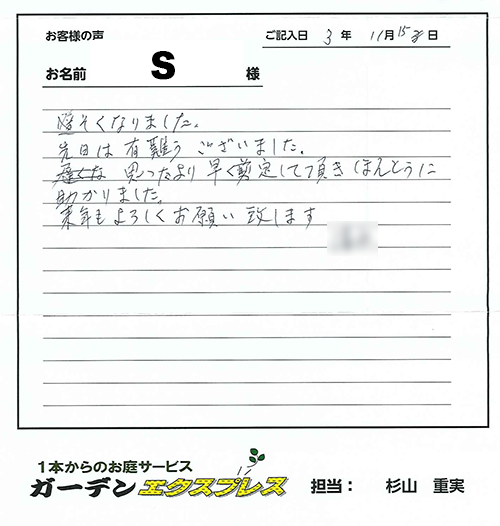 お客様の声
ご記入日 3 年 11月15日
お名前 S 様
遅そくなりました。
先日は有難う ございました。
思ったより早く剪定して頂き ほんとうに
助かりました。
来年もよろしくお願い致します
1本からのお庭サービス
ガーデンエクスプレス 担当： 杉山 重実